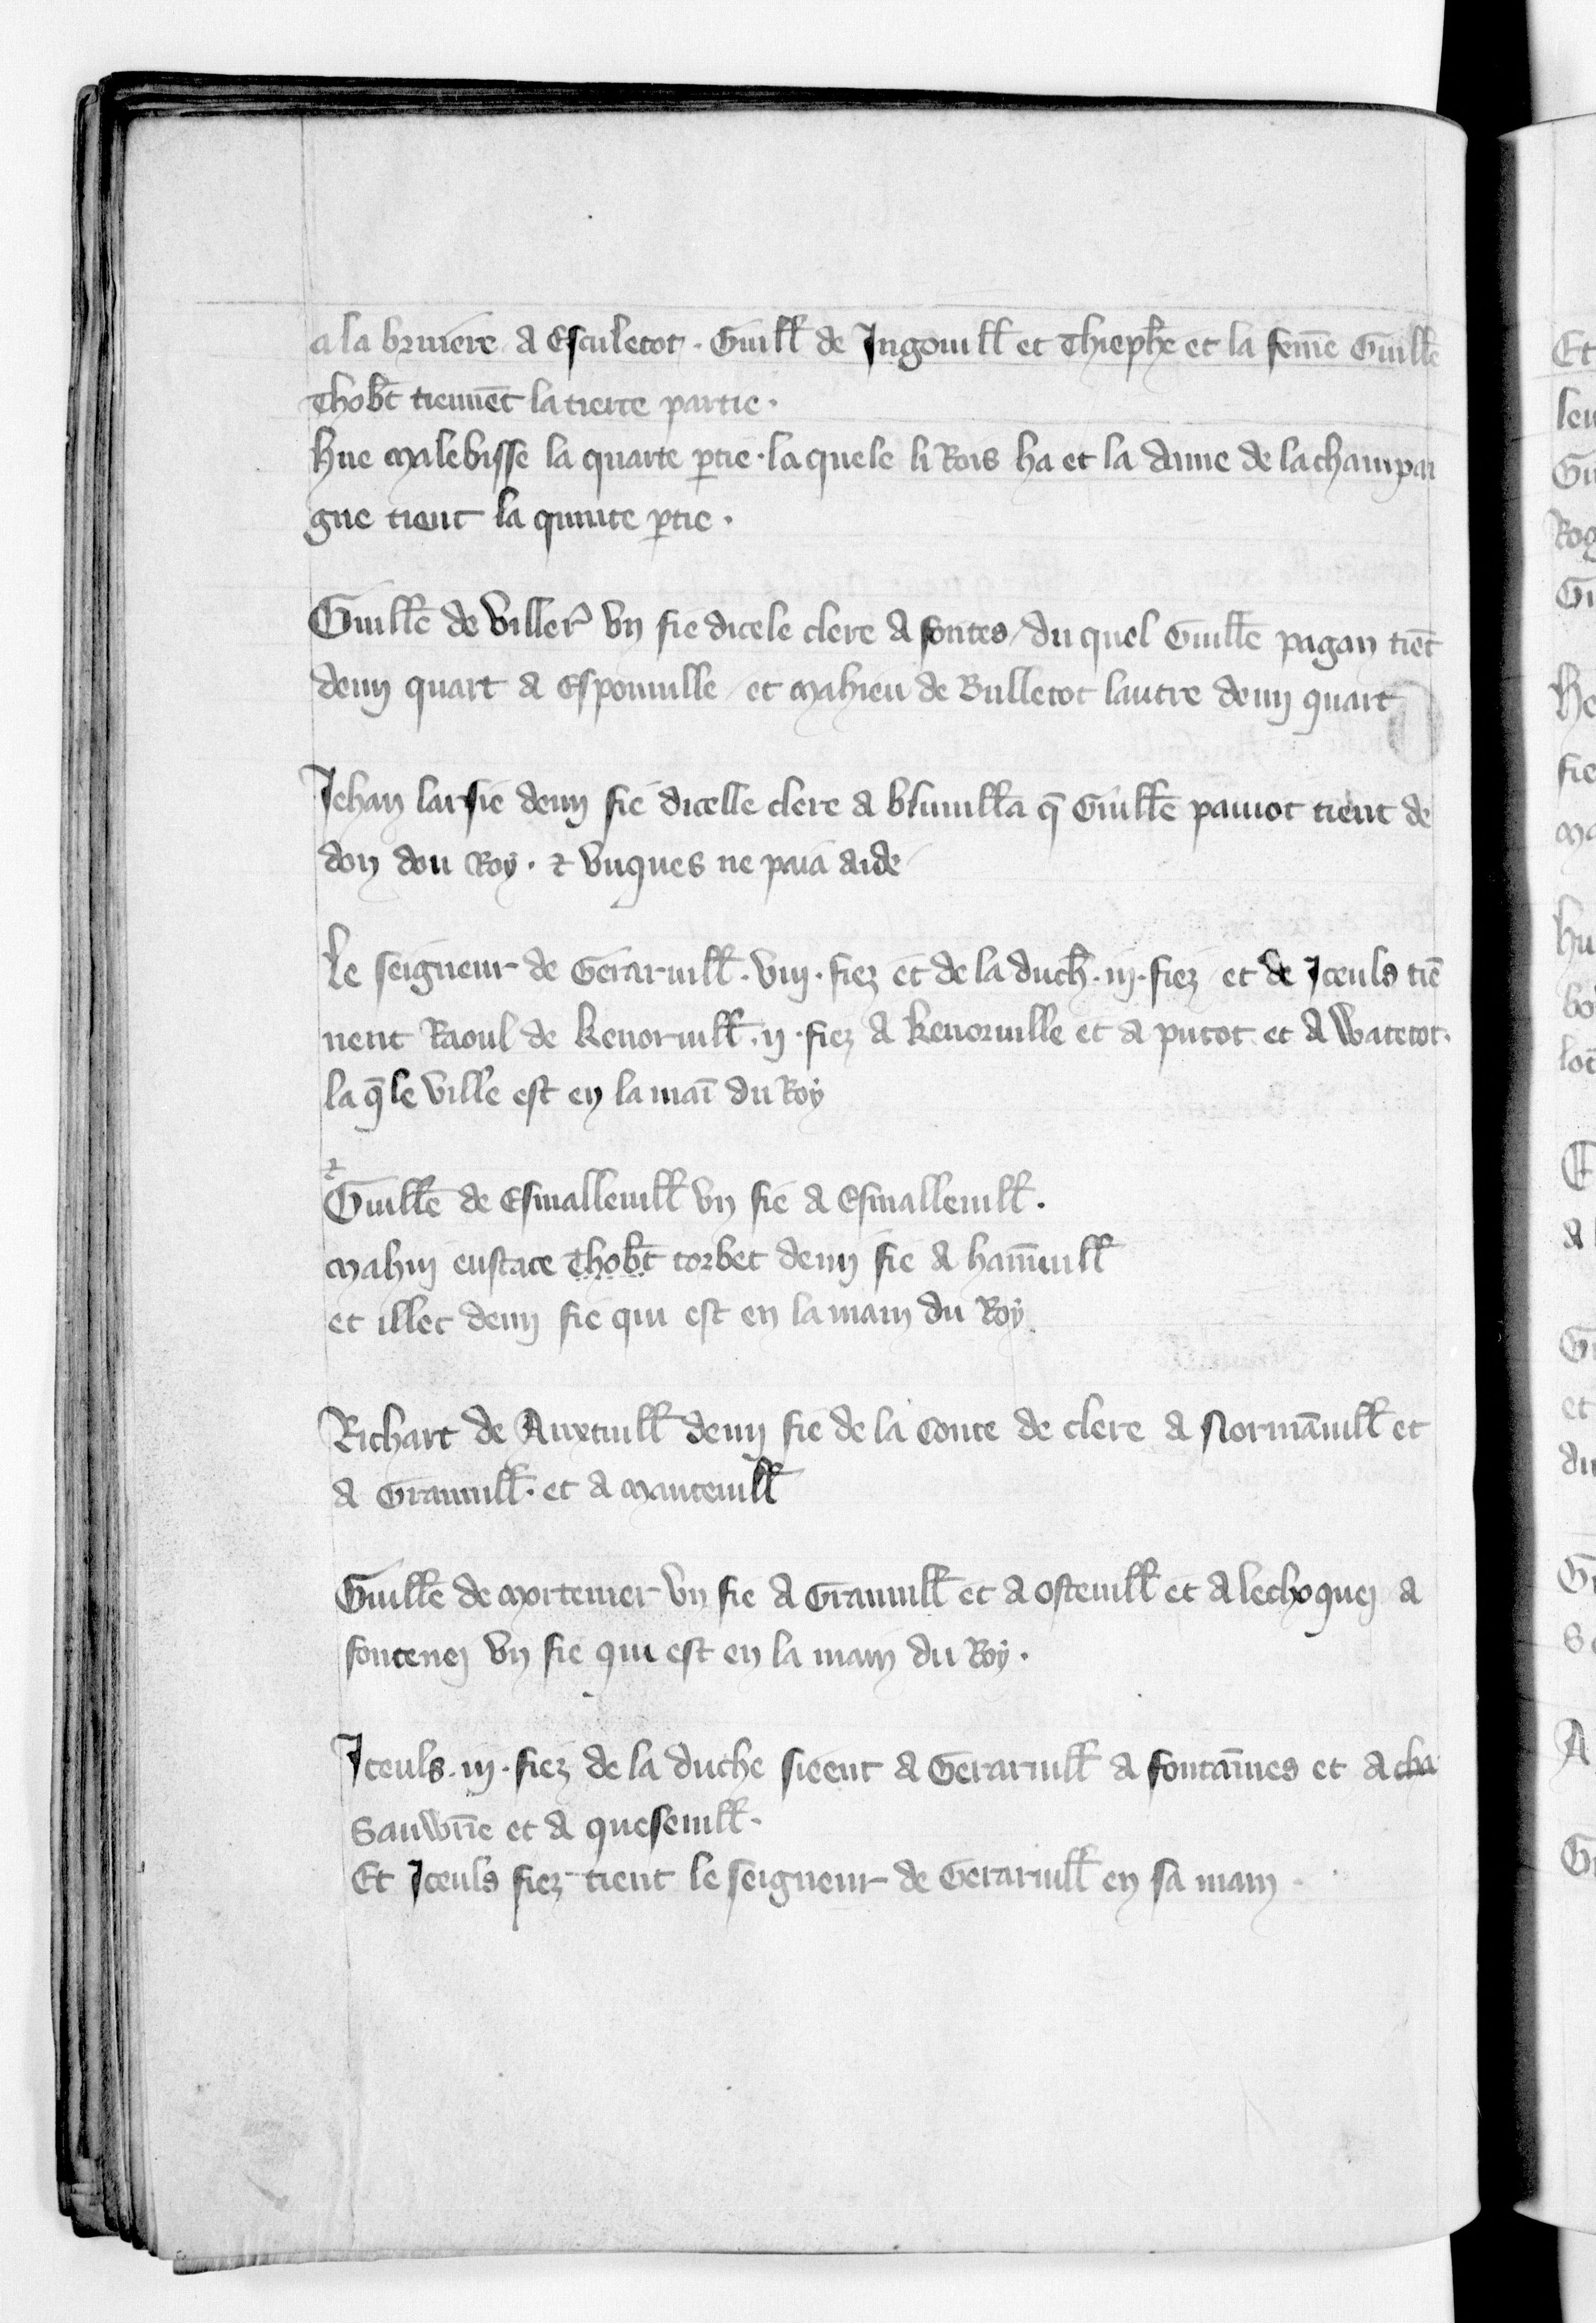 a la bruiere a Esculetot · Guill̄ de Jngouill̄ et Thieph̄e et la fem̄e Guill̄e
Thob̄t tiennēt la tierce partie ·
hue malebisse la quarte ꝑtie · la quele li Rois ha et la dame de la champai
gne tient la quinte ꝑtie ·
Guill̄e de viller̄ vn fie dicele clere a fontes / du quel Guill̄e pagan tiēt
demj quart a Espouuille / et mahieu de Bulletot lautre demj quart
Jehan larsie demj fie dicelle clere a bliuill̄a q̄ Guill̄e painot tient de
don dou Roy · ⁊ vnques ne paia aide /
Le seigneur de Gerarvill̄ · viij · fiez et de la duch̄ · iij · fiez / et de Jceuls tiē
nent Raoul de kenorvill̄ · ij · fiez a kenorville et a putot et a Watetot ·
la q̄le ville est en la maī du Roy
⁊
Guill̄e de Esmalleuill̄ vn fie a Esmalleuill̄ ·
mahuj eustace Thob̄t torbet demj fie a ham̄uill̄
et illec demj fie qui est en la main du Roy
Richart de Auxtuill̄ demj fie de la Conte de clere a Normāuill̄ et
a Grauuill̄ · et a manteuill̄
Guill̄e de mortemer vn fie a Grauuill̄ et a osteuill̄ et a lechoquej a
fontenej vn fie qui est en la main du Roy ·
Jceuls · iij · fiez de la duche sieent a Gerarvill̄ a fontaīnes et a cha
Sauwīe et a queseuill̄ ·
Et Jceuls fiez tient le seigneur de Gerarvill̄ en sa main ·